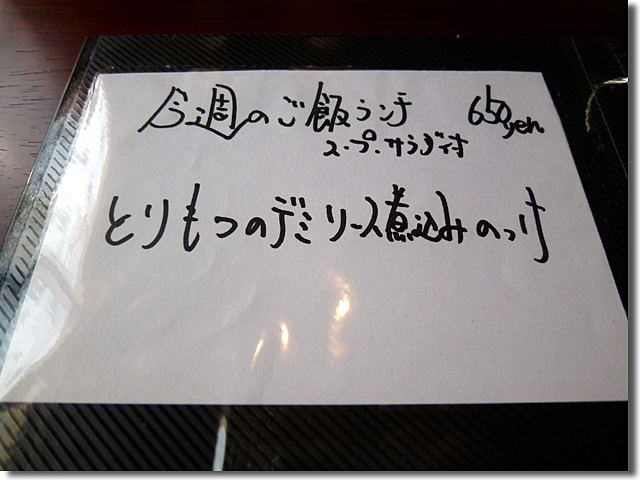 今週のご飯ランチ 650yen
スープ・サラダ付
とりもつのデミソース煮込みのっけ